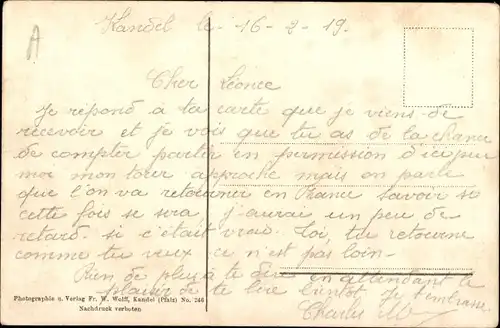 A
Kandel le 16-2-19.
Cher Léonce
Je répond à ta carte que je viens de
recevoir et je vois que tu as de la chance
de compter partir en permission d'ici peu
moi mon tour approche mais on parle
que l'on va retourner en France savoir si
cette fois se sera j'aurai un peu de
retard si c'était vrai. Toi tu retourne
comme tu veux ce n'est pas loin-
Rien de plus à te dire en attendant le
plaisir de te lire bientot je t'embrasse
Charles
Photographie u. Verlag Fr. W. Wolff, Kandel (Pfalz) No. 246
Nachdruck verboten